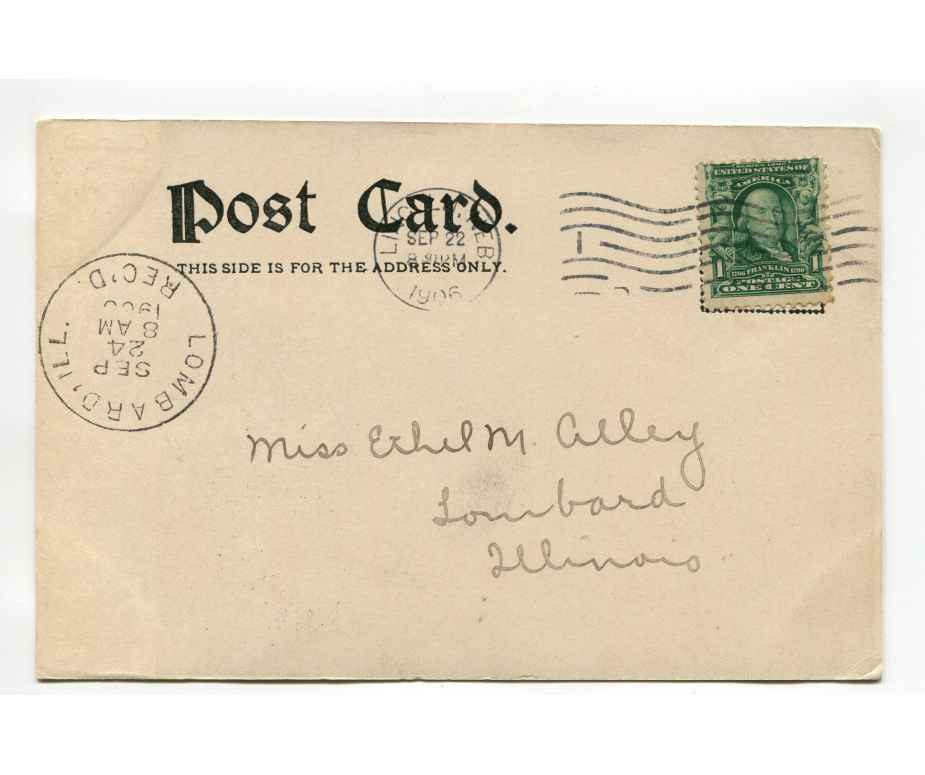 Post Card.
THIS SIDE IS FOR THE ADDRESS ONLY.
SEP 22
1906
UNITED STATES OF
AMERICA
1 FRANKLIN 1
POSTAGE
ONE CENT
LOMBARD, ILL.
SEP
24
8 AM
REC'D.
Miss Ethel M. Alley
Lombard
Illinois